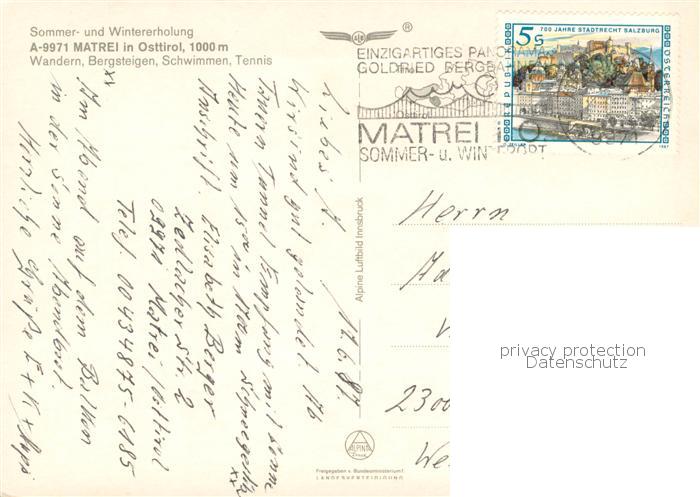 Sommer- und Wintererholung
A-9971 MATREI in Osttirol, 1000 m
Wandern, Bergsteigen, Schwimmen, Tennis
®
5 S
700 JAHRE STADTRECHT SALZBURG
REPUBLIK
ÖSTERREICH
1987
EINZIGARTIGES PANORAMA
GOLDRIED BERGBAHN
Osttirol
MATREI i. O.
SOMMER- u. WINTERPORT
9971
17.6.87
Liebes
Wir sind gut gelandet
Tauern Tunnel Empfang mit
Heute nun Schneegestöber
Anschrift. Elisabeth Berger
Zedlacher Str. 2
09971 Matrei / Osttirol
Telef. 00434875-6185
xx
Am Abend auf dem Balkon
in der Sonne Abendbrot.
Herzliche Grüße E + K +
Alpine Luftbild Innsbruck
Herrn
2300
ALPINE
Druck
Freigegeben v. Bundesministerium f.
LANDESVERTEIDIGUNG
privacy protection
Datenschutz